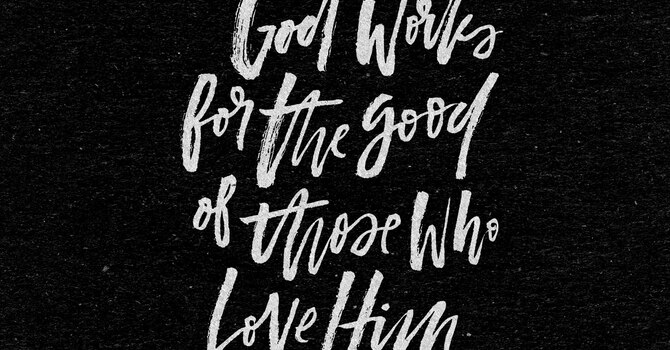 God Works
for the good
of those Who
Love Him